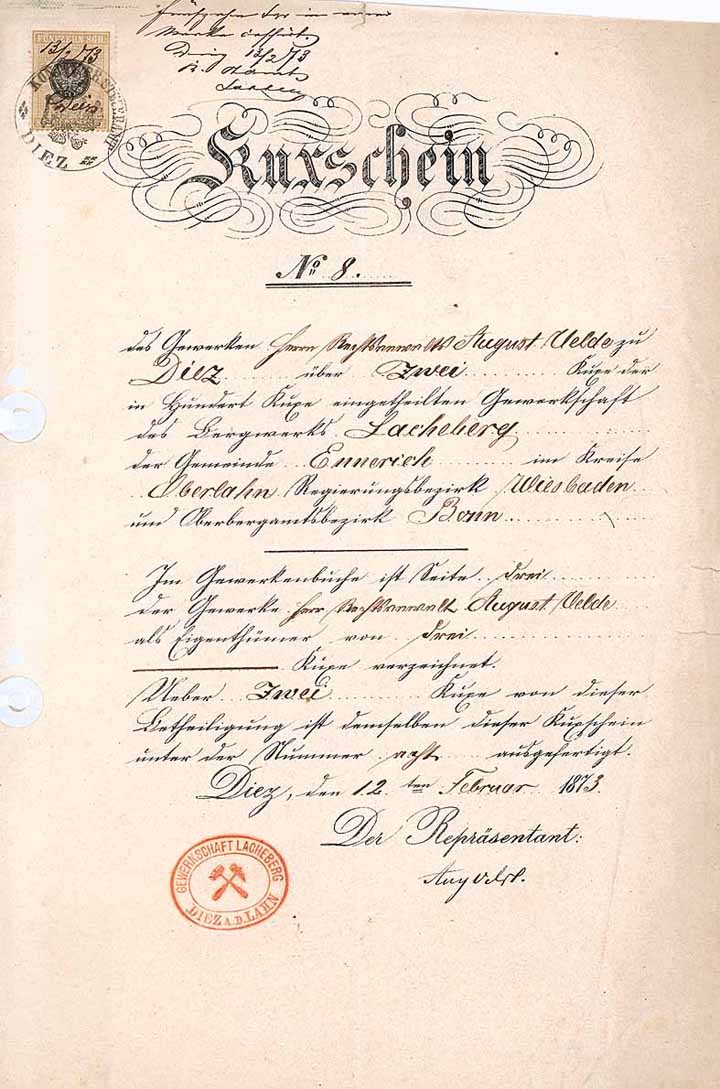 FÜNFZEHN SGR.
13/2 73
DIEZ
in
Marke
Diez 13/2 73
Kuxschein
No. 8.
des Gewerken Herrn Rechtsanwalts August Velde zu
Diez über Zwei Kuxe der
in Hundert Kuxe eingetheilten Gewerkschaft
des Bergwerks Lacheberg
der Gemeinde Ennerich im Kreise
Oberlahn Regierungsbezirk Wiesbaden
und Oberbergamtsbezirk Bonn
Im Gewerkenbuche ist Seite drei
der Gewerke Herr Rechtsanwalt August Velde
als Eigenthümer von drei
Kuxe verzeichnet.
Ueber Zwei Kuxe von dieser
Betheiligung ist demselben dieser Kuxschein
unter der Nummer acht ausgefertigt.
Diez, den 12ten Februar 1873.
Der Repräsentant:
Aug Velde.
GEWERKSCHAFT LACHEBERG
DIEZ A.D. LAHN